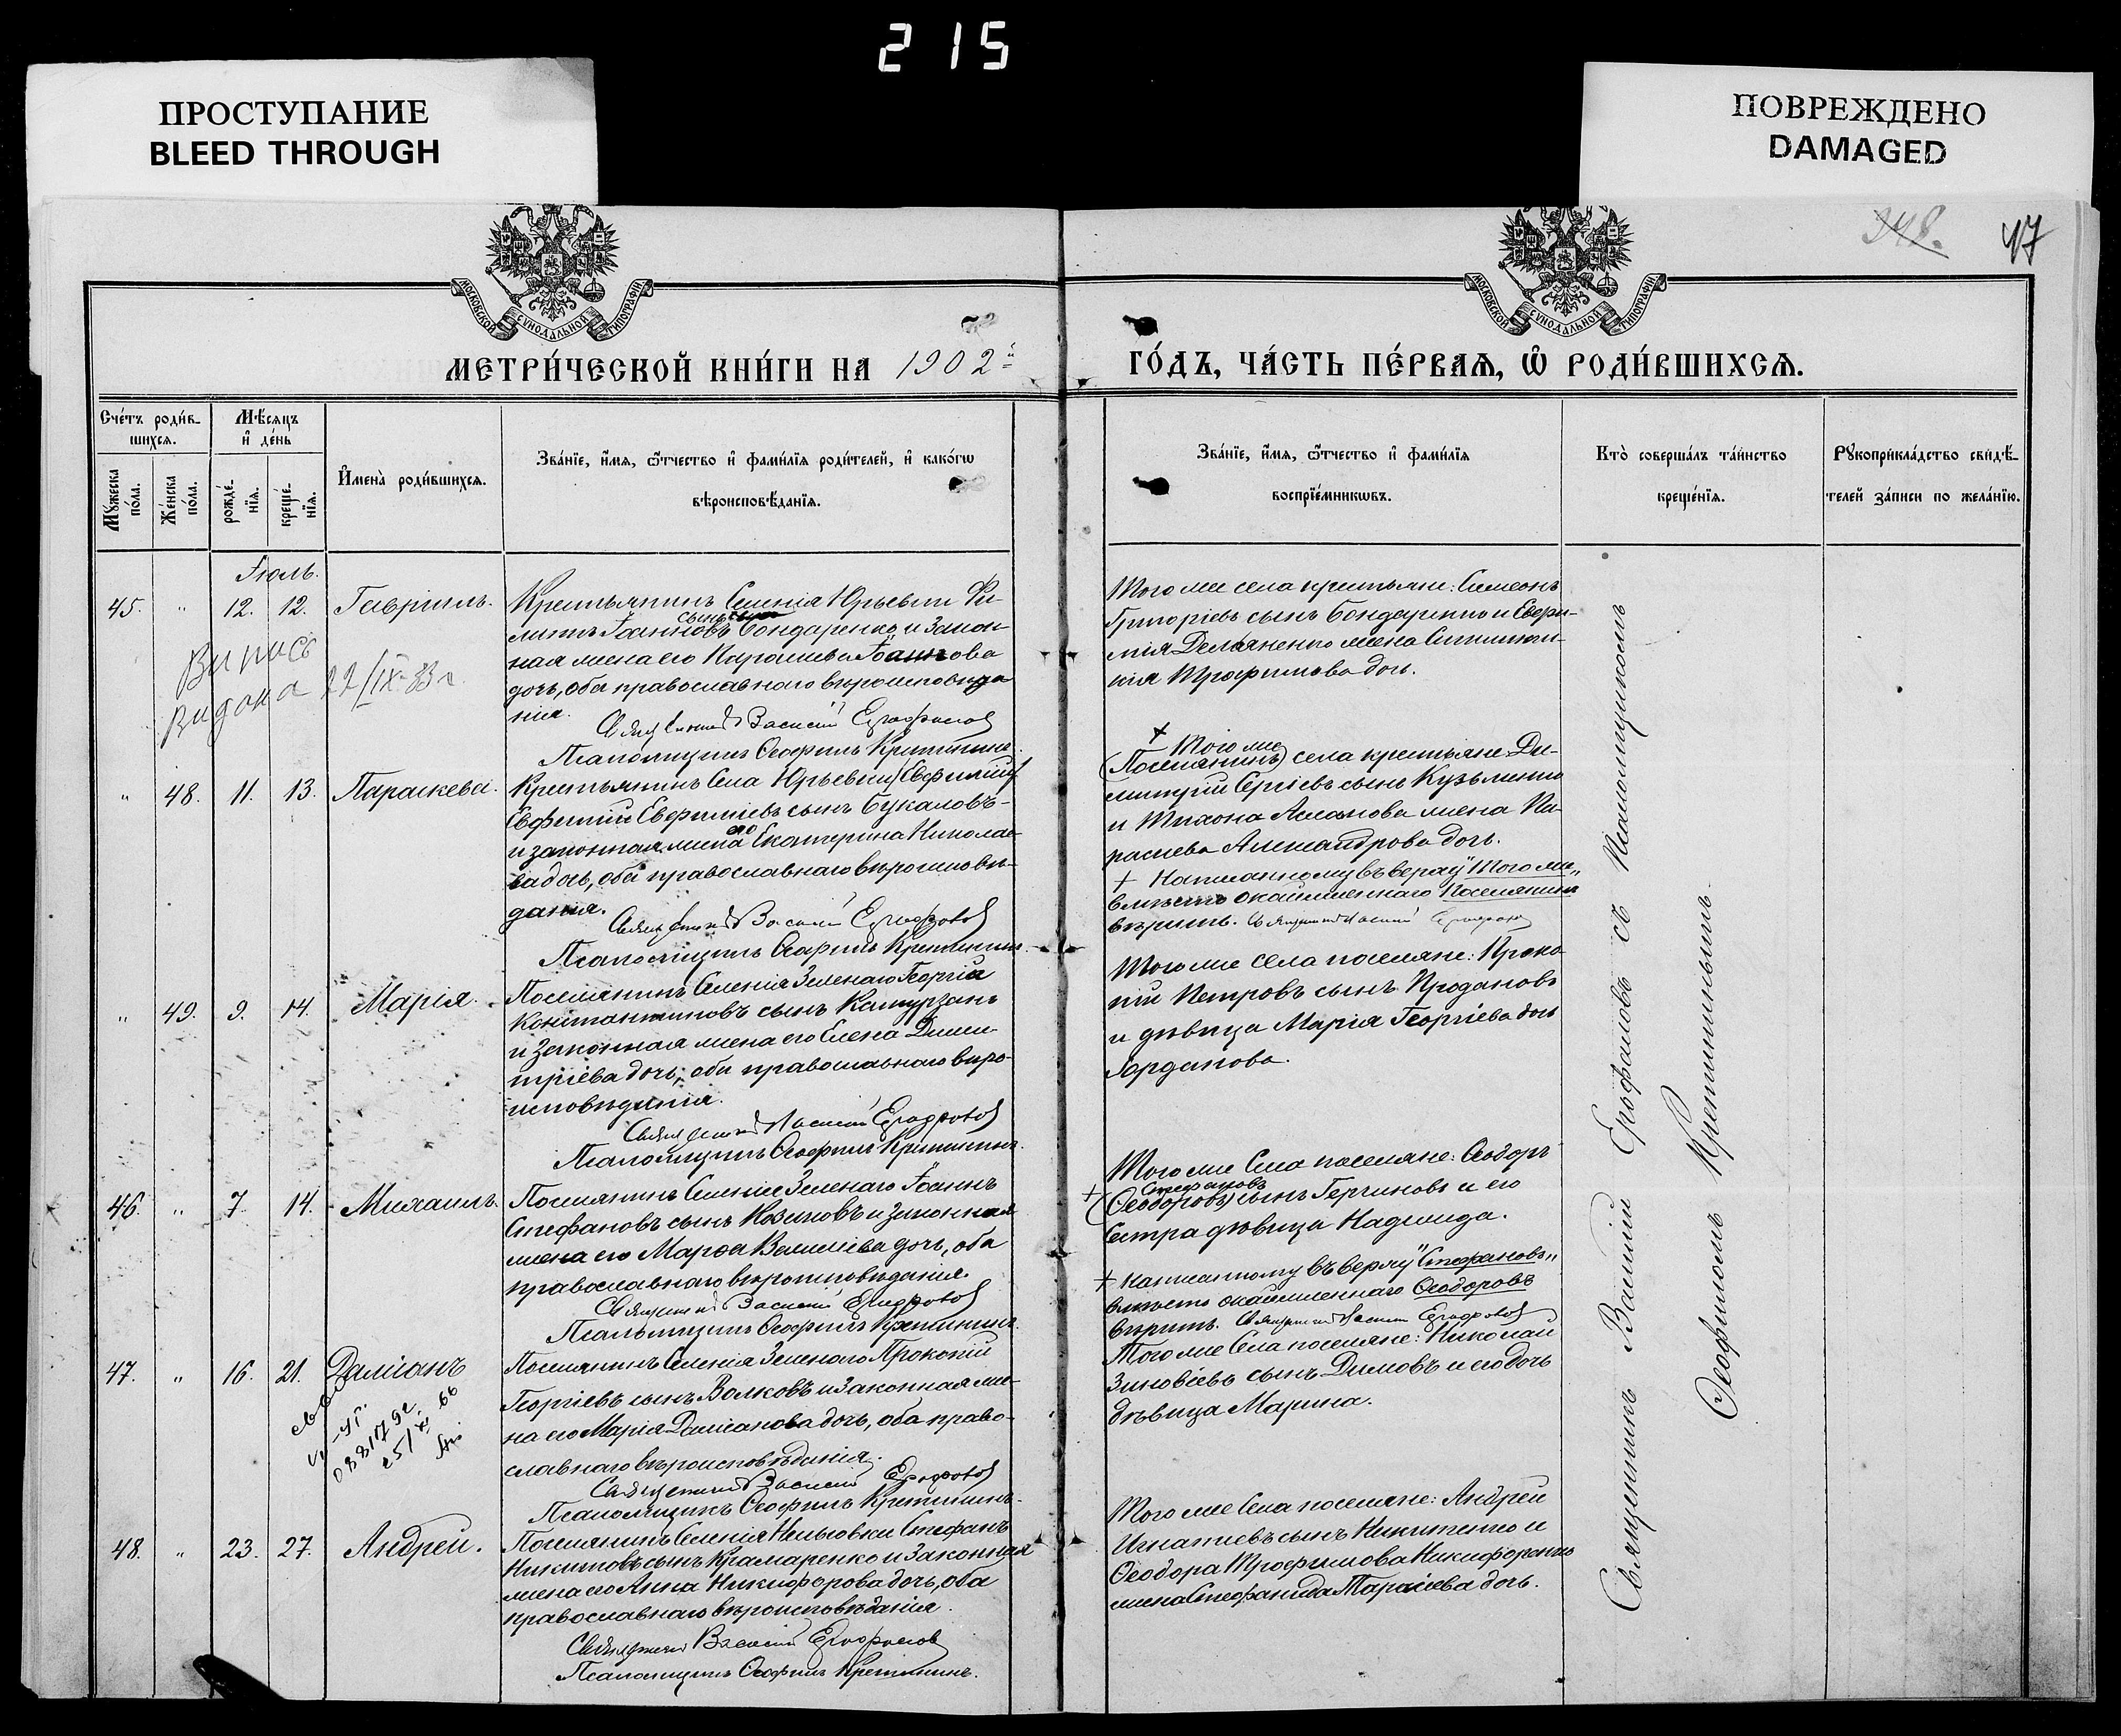 215
ПРОСТУПАНИЕ
BLEED THROUGH
ПОВРЕЖДЕНО
DAMAGED
348.
47
МОСКОВСКОЙ СУНОДАЛЬНОЙ ТИПОГРАФІИ
МОСКОВСКОЙ СУНОДАЛЬНОЙ ТИПОГРАФІИ
МЕТРИ́ЧЕСКОЙ КНИ́ГИ НА 1902й
ГО́ДЪ, ЧА́СТЬ ПЕ́РВАѦ, Ѡ РОДИ́ВШИХСѦ.
Сче́тъ роди́в-
шихсѧ.
Мѣ́сѧцъ
и҆ де́нь
Мꙋ́жеска
по́ла.
Же́нска
по́ла.
рожде́-
нїѧ.
креще́-
нїѧ.
И҆мена̀ роди́вшихсѧ.
Зва́нїе, и҆́мѧ, ѻ҆́тчество и҆ фами́лїѧ роди́телей, и҆ како́гѡ
вѣроисповѣ́данїѧ.
Зва́нїе, и҆́мѧ, ѻ҆́тчество и҆ фами́лїѧ
воспрїе́мникѡвъ.
Кто̀ соверша́лъ та́инство
креще́нїѧ.
Рꙋкоприкла́дство свидѣ́-
телей за́писи по жела́нїю.
Іюль.
45. " 12. 12. Гавріилъ.
Крестьянинъ Селенія Юрьевки Фи-
липпъ Іоанновъ сынъ Бондаренко и закон-
ная жена его Параскева Іоаннова
дочь, оба православнаго вѣроисповѣда
нія.
Священникъ Василій
Псаломщикъ Ѳеофилъ Кретининъ.
Випись
видана 22/IX-83 г.
Того же села крестьяне: Симеонъ
Григоріевъ сынъ Бондаренко и Евфи-
мія Демьяненко жена
Трофимова дочь.
" 48. 11. 13. Параскева.
Крестьянинъ Села Юрьевки (Евфимій)
Евфимій Евфиміевъ сынъ Букаловъ-
и законная жена его Екатерина Николае-
ва дочь, оба православнаго вѣроисповѣ-
данія.
Священникъ Василій
Псаломщикъ Ѳеофилъ Кретининъ.
+ Того же
(Поселянинъ) села крестьяне Ди-
митрій Сергіевъ сынъ Кузьменко
и Тихона Асланова жена Па-
раскева Александрова дочь.
+ Написанному въ верху "Того же"
вмѣсто окаймленнаго Поселянинъ
вѣрить. Священникъ Василій
" 49. 9. 14. Марія.
Поселянинъ Селенія Зеленаго Георгій
Константиновъ сынъ Катурзанъ
и законная жена его Елена Дими-
тріева дочь, оба православнаго вѣро-
исповѣданія.
Священникъ Василій
Псаломщикъ Ѳеофилъ Кретининъ.
Того же Села поселяне: Проко-
пій Петровъ сынъ Продановъ
и дѣвица Марія Георгіева дочь
Іорданова.
46. " 7. 14. Михаилъ.
Поселянинъ Селенія Зеленаго Іоаннъ
Стефановъ сынъ Козиковъ и законная
жена его Марѳа Василіева дочь, оба
православнаго вѣроисповѣданія.
Священникъ Василій
Псаломщикъ Ѳеофилъ Кретининъ.
Того же Села поселяне: Ѳеодоръ
+ Стефановъ
(Ѳеодоровъ) сынъ Герчиковъ и его
сестра дѣвица Надежда.
+ Написанному въ верху "Стефановъ"
вмѣсто окаймленнаго Ѳеодоровъ
вѣрить. Священникъ Василій
47. " 16. 21. Даміанъ
Поселянинъ Селенія Зеленаго Прокопій
Георгіевъ сынъ Волковъ и законная же-
на его Марія Даміанова дочь, оба право-
славнаго вѣроисповѣданія.
Священникъ Василій
Псаломщикъ Ѳеофилъ Кретининъ.
Того же Села поселяне: Николай
Зиновіевъ сынъ Димовъ и его дочь
дѣвица Марина.
48. " 23. 27. Андрей.
Поселянинъ Селенія Стефанъ
Никитовъ сынъ Крамаренко и законная
жена его Анна Никифорова дочь, оба
православнаго вѣроисповѣданія.
Священникъ Василій
Псаломщикъ Ѳеофилъ Кретининъ.
Того же Села поселяне: Андрей
Игнатіевъ сынъ Никитенко и
Ѳеодора Трофимова Никифоренко
жена Стефанида Тарасіева дочь.
Священникъ Василій съ Псаломщикомъ
Ѳеофиломъ Кретининымъ.